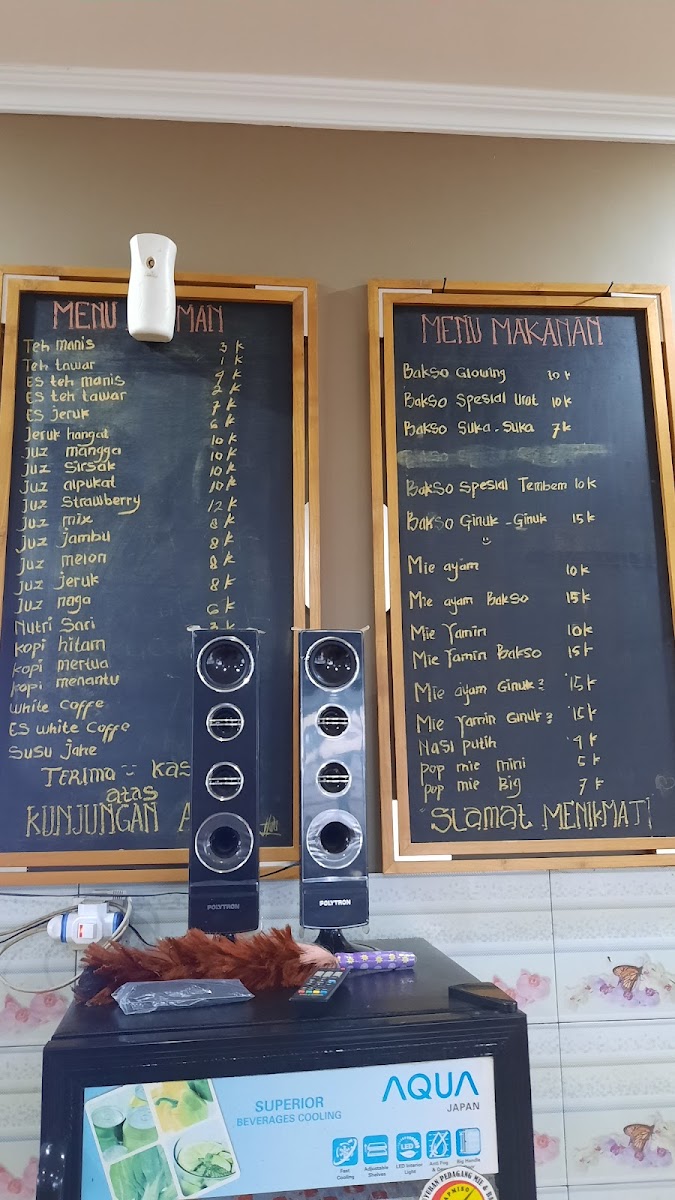 MENU MAN
Teh manis 3k
Teh tawar 1k
Es teh manis 4k
Es teh tawar 2k
Es jeruk 7k
Jeruk hangat 6k
Juz mangga 10k
Juz Sirsak 10k
Juz alpukat 10k
Juz Strawberry 10k
Juz mix 12k
Juz jambu 8k
Juz melon 8k
Juz jeruk 8k
Juz naga 8k
Nutri Sari 6k
kopi hitam 3k
kopi mertua
kopi menantu
White Coffe
ES white Coffe
SuSu Jahe
TERIMA KAS
atas
KUNJUNGAN A
MENU MAKANAN
Bakso Glowing 10k
Bakso Spesial Urat 10k
Bakso Suka-Suka 7k
BakSo Spesial Tembem 10k
BakSo Ginuk-Ginuk 15k
Mie ayam 10k
Mie ayam Bakso 15k
Mie Yamin 10k
Mie Yamin Bakso 15k
Mie ayam Ginuk2 15k
Mie Yamin Ginuk2 15k
Nasi Putih 4k
pop mie mini 5k
pop mie Big 7k
"SLamat MENIKMATI
POLYTRON
POLYTRON
SUPERIOR
BEVERAGES COOLING
AQUA
JAPAN
Fast Cooling
Adjustable Shelves
LED Interior Light
Big Handle